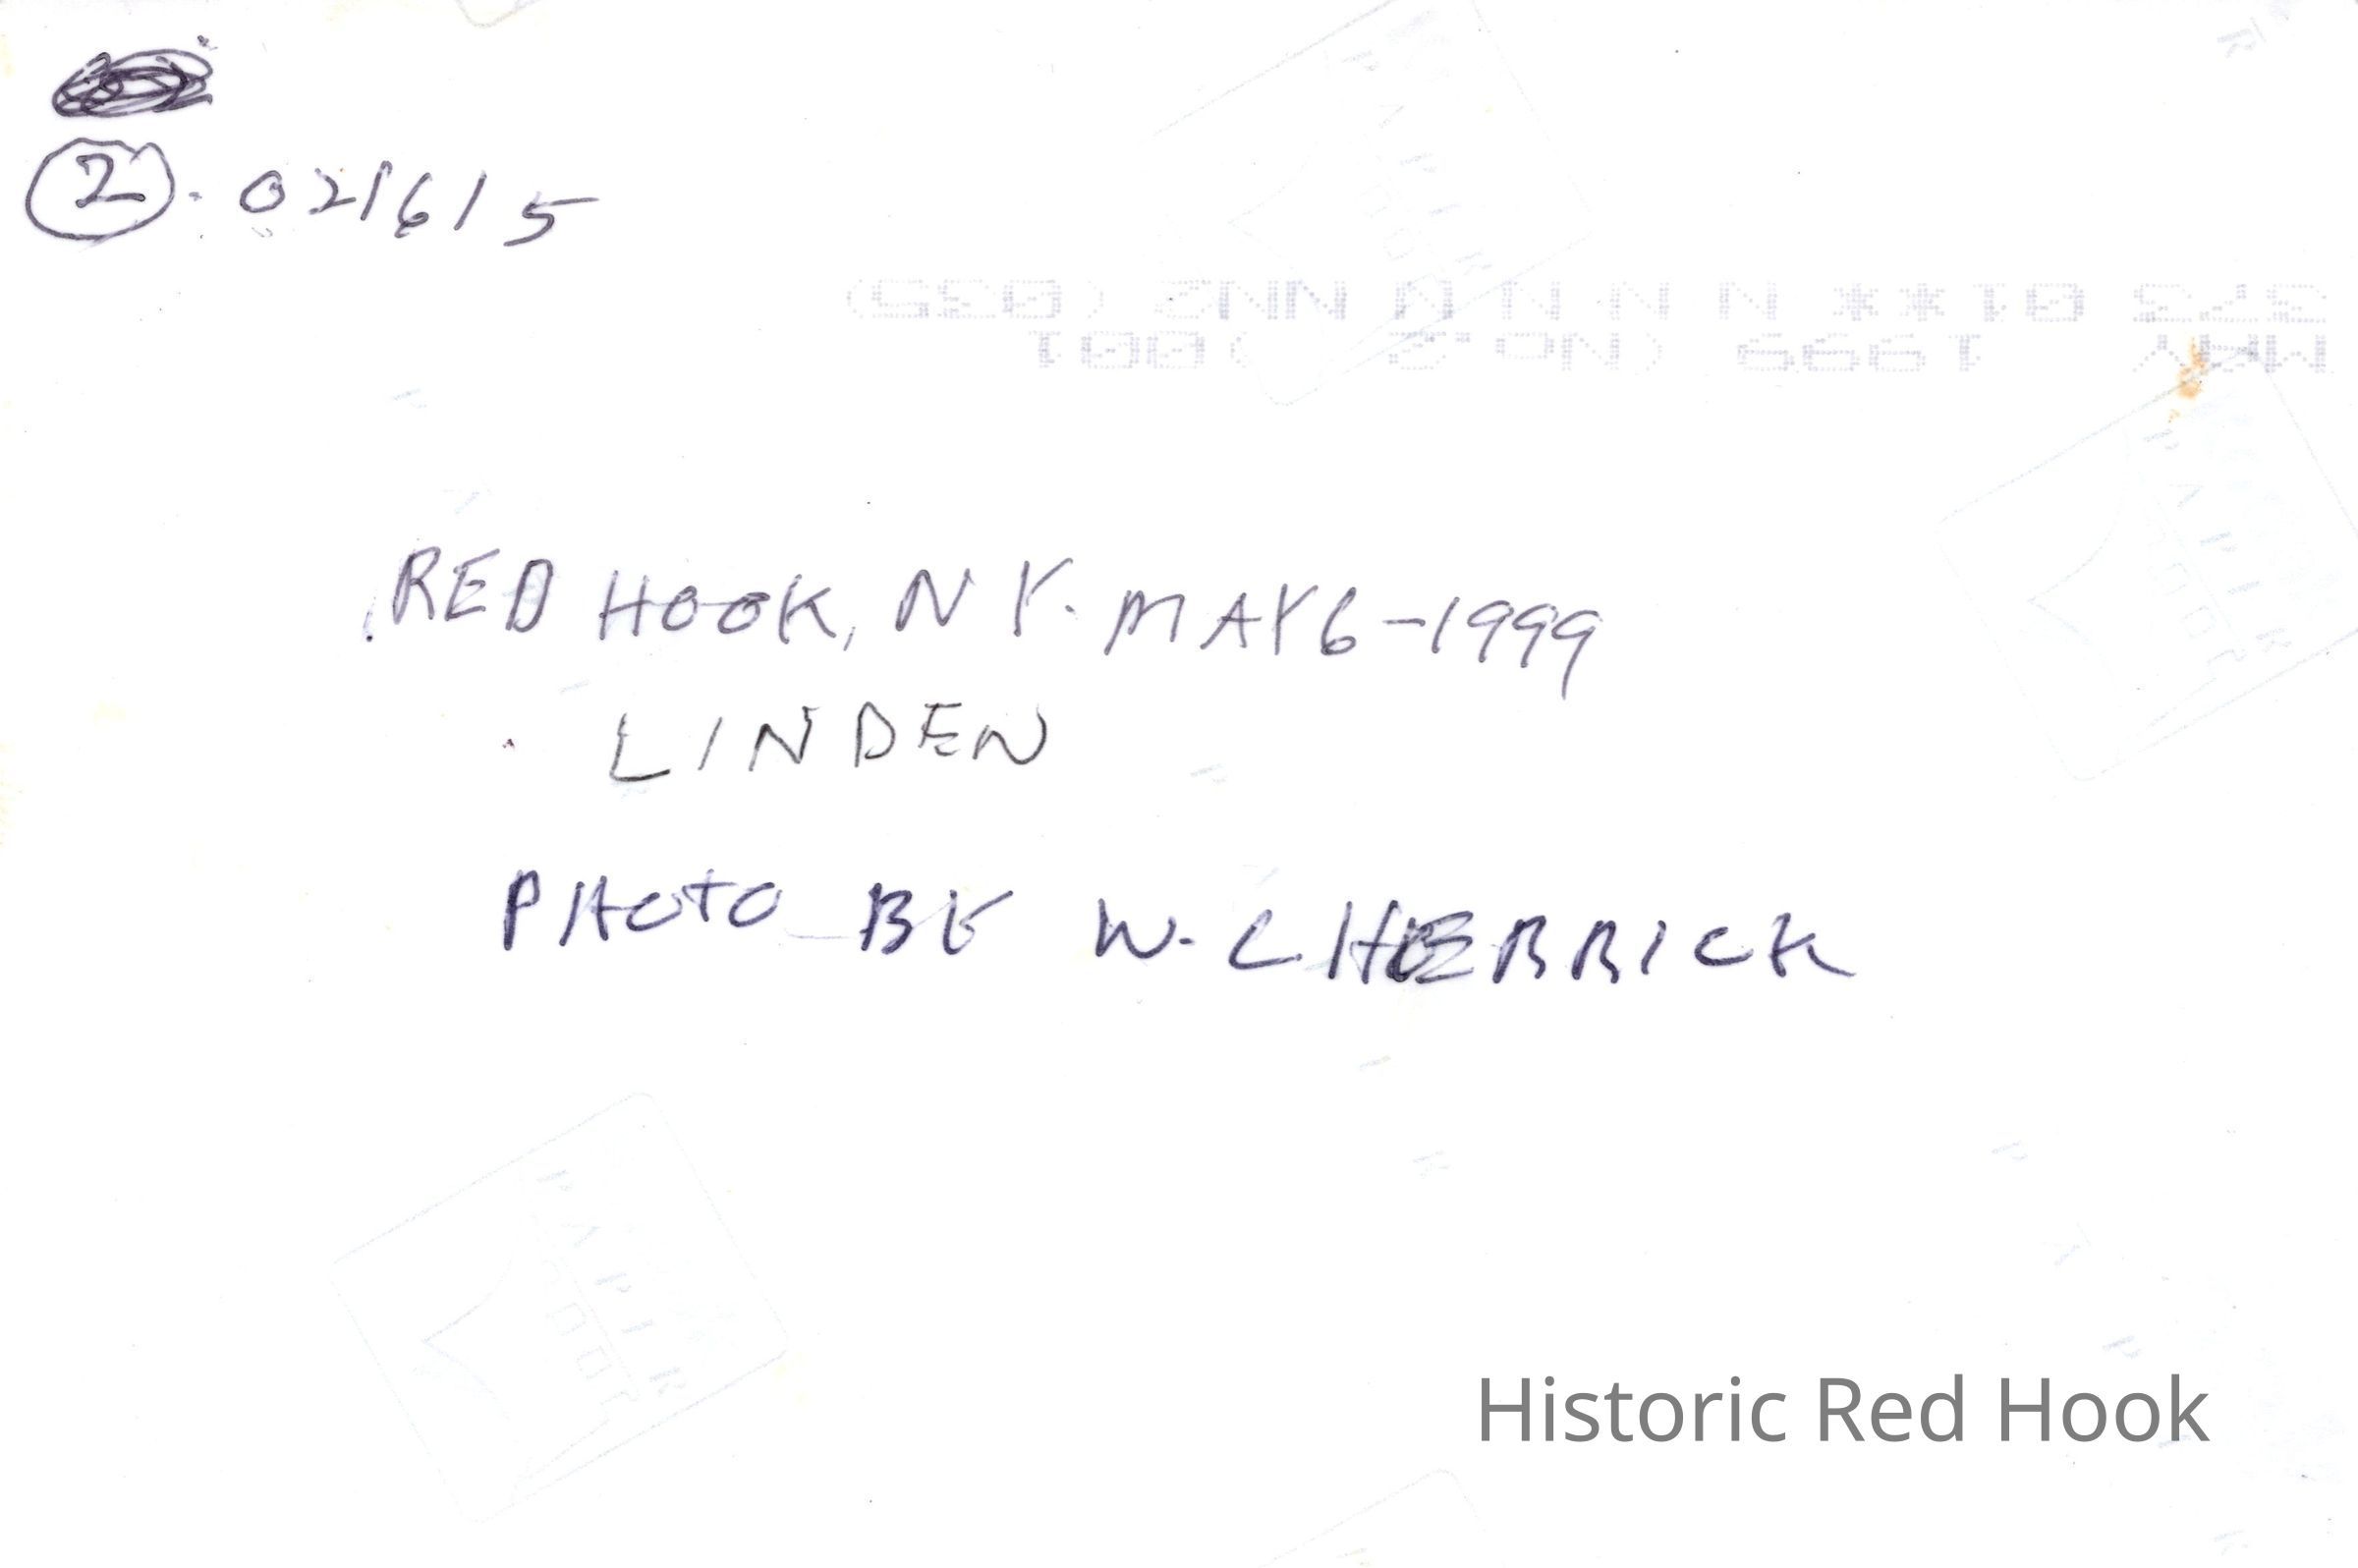 2. 021615
RED HOOK, NY. MAY 6-1999
LINDEN
PHOTO BY W. C. HERRICK
Historic Red Hook